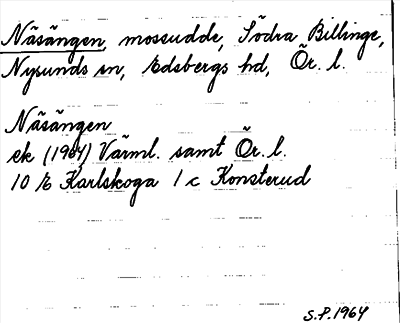 Näsängen, mossudde, Södra Billinge,
Nysunds sn, Edsbergs hd, Ör. l.
Näsängen
ek (1964) Värml. samt Ör. l.
10 E Karlskoga 1 c Konsterud
S.P. 1964